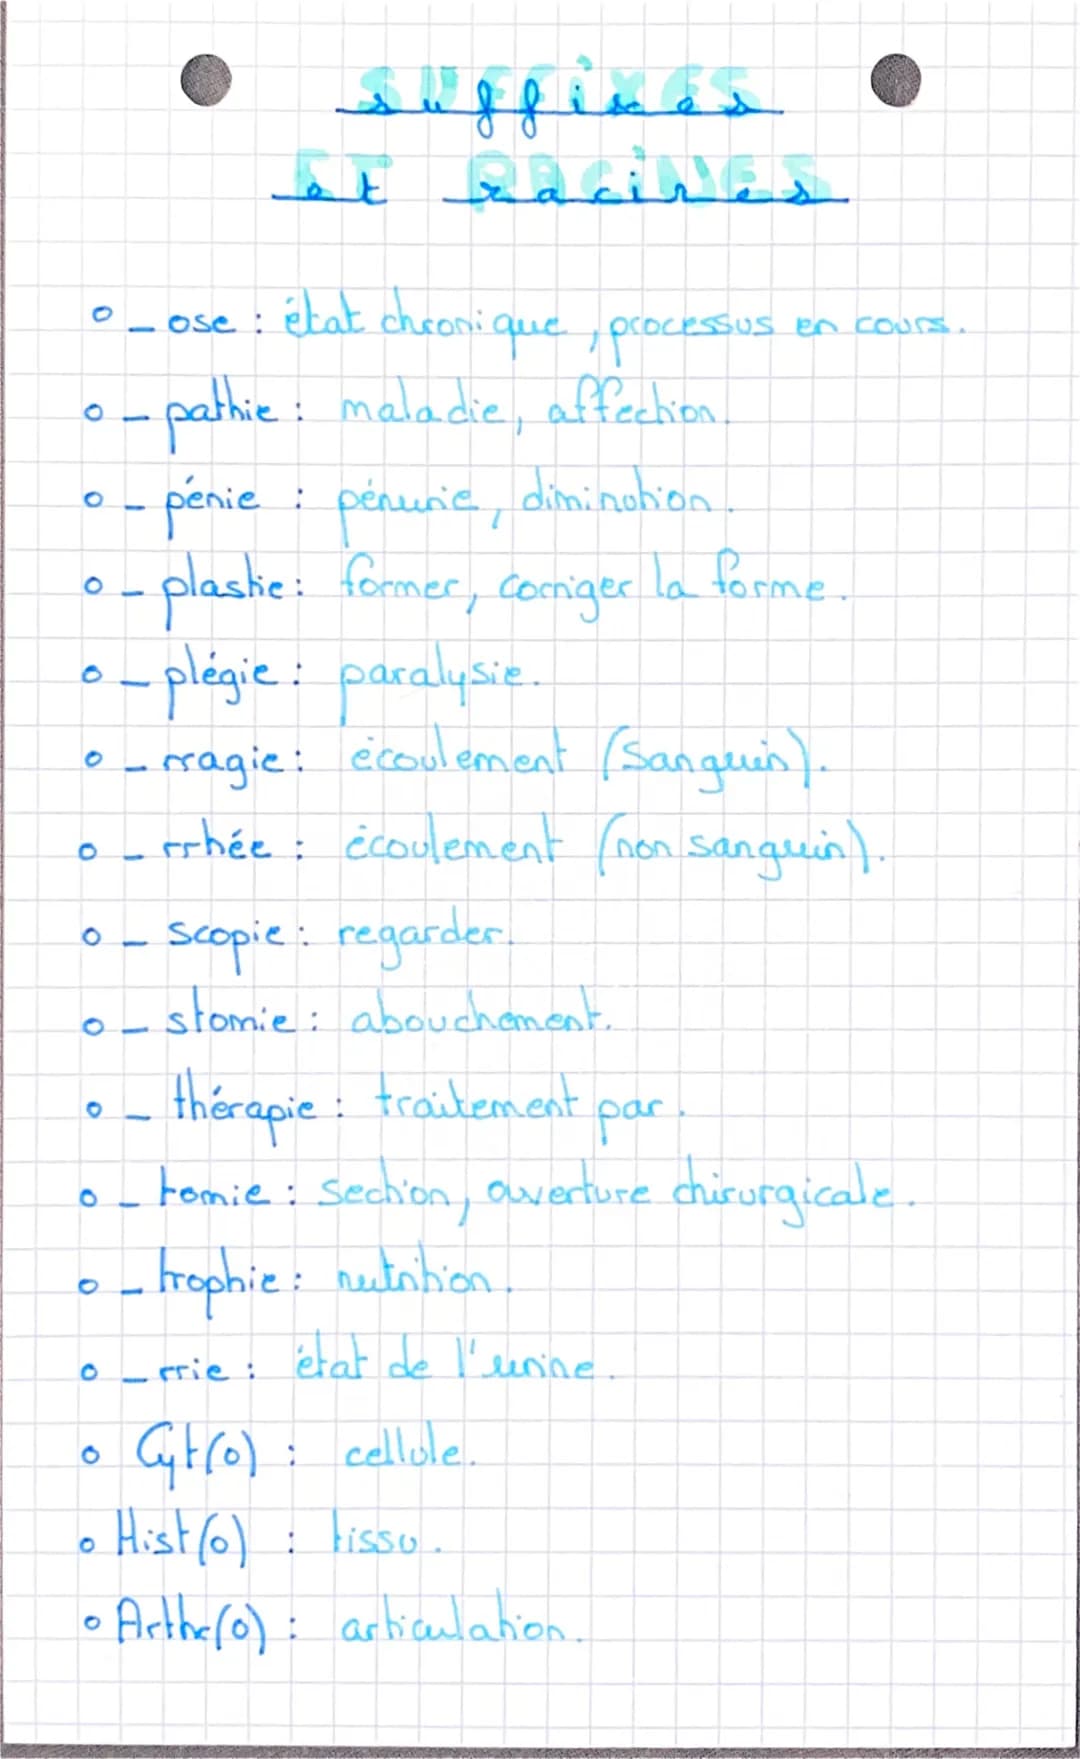 suffixes
et racines
_ ose : état chronique, processus en cours.
_ pathie : maladie, affection.
_ pénie : pénurie, diminution.
_ plastie : former, corriger la forme.
_ plégie : paralysie.
_ rragie : écoulement (sanguin).
_ rrhée : écoulement (non sanguin).
_ scopie : regarder.
_ stomie : abouchement.
_ thérapie : traitement par.
_ tomie : section, ouverture chirurgicale.
_ trophie : nutrition.
_ rrie : état de l'urine.
Cyt(o) : cellule.
Hist(o) : tissu.
Arthr(o) : articulation.